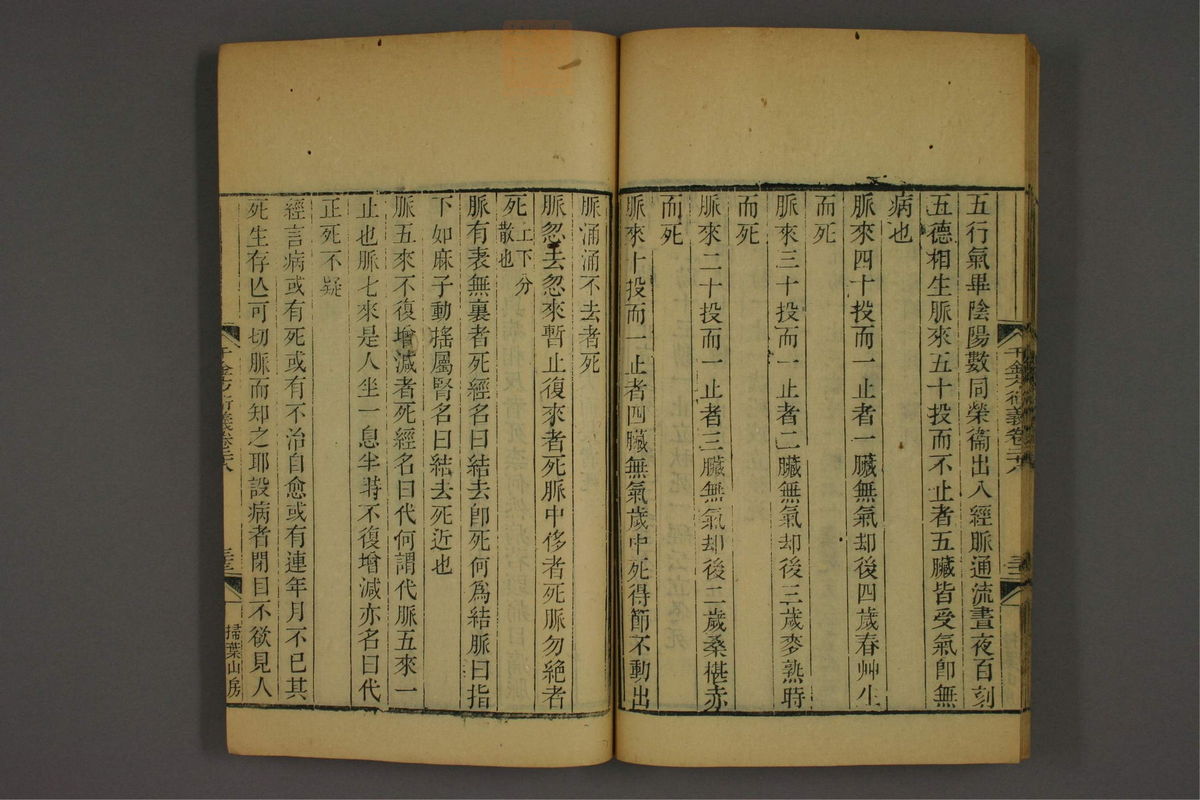 五行氣畢陰陽數同榮衞出入經脈通流晝夜百刻
五德相生脈來五十投而不止者五臟皆受氣卽無
病也
脈來四十投而一止者一臟無氣却後四歲春艸生
而死
脈來三十投而一止者二臟無氣却後三歲麥熟時
而死
脈來二十投而一止者三臟無氣却後二歲桑椹赤
而死
脈來十投而一止者四臟無氣歲中死得節不動出
脈涌涌不去者死
脈忽去忽來暫止復來者死脈中侈者死脈勿絶者
死上下分散也
脈有表無裏者死經名曰結去卽死何爲結脈曰指
下如麻子動搖屬腎名曰結去死近也
脈五來不復增減者死經名曰代何謂代脈五來一
止也脈七來是人坐一息半時不復增減亦名曰代
正死不疑
經言病或有死或有不治自愈或有連年月不已其
死生存亾可切脈而知之耶設病者閉目不欲見人
千金方衍義卷二十八
掃葉山房